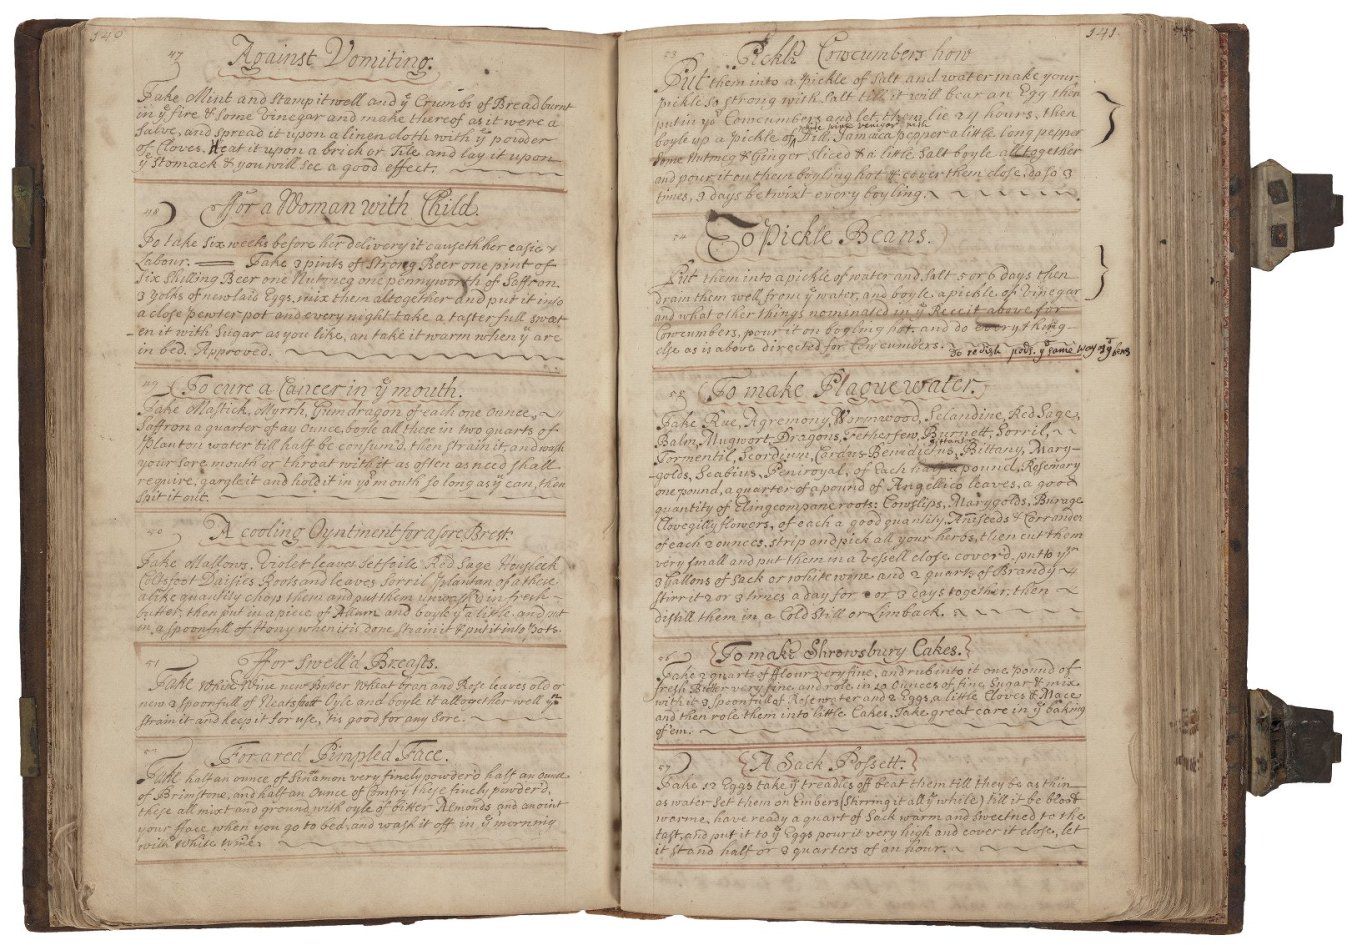 140
47 Against Vomiting.
Take Mint and stamp it well and yͤ Crumbs of Bread burnt
in yͤ fire & some vinegar and make thereof as it were a
salve, and spread it upon a linen cloth with yͤ powder
of Cloves. Heat it upon a brick or Tile and lay it upon
yͤ Stomack & you will see a good effect.
48 ffor a Woman with Child.
To take six weeks before her delivery it causeth her easie
Labour. Take 3 pints of strong Beer one pint of
six shilling Beer one Nutmeg one pennyworth of Saffron.
3 yolks of new laid Eggs, mix them altogether and put it into
a close pewter pot and every night take a taster full sweet
en it with Sugar as you like, an take it warm when yͤ are
in bed. Approved.
49 To cure a Cancer in yͤ mouth.
Take Mastick, Myrrh, Gumdragon of each one ounce,
Saffron a quarter of an Ounce, boyle all these in two quarts of
Planton water till half be consum'd, then strain it, and wash
your sore mouth or throat with it as often as need shall
require, gargle it and hold it in yͬ mouth so long as yͤ can, then
spit it out.
A cooling Oyntment for a sore Brest.
Take Mallows, Violet leaves Setfoile Red Sage Housleek
Coltsfoot Daisies Roots and leaves Sorril Plantan of a these
alike quantity chop them and put them in fresh
butter, then put in a piece of Allum and boyle yͫ a little, and put
in a spoonfull of Hony when it is done strain it & put it into Pots.
51 ffor swell'd Breasts.
Take White Wine new Buter Wheat bran and Rose leaves old or
new 2 spoonfull of Neatsfoot Oyle and boyle it altogether well yⁿ
strain it and keep it for use, 'tis good for any Sore.
52 For a red Pimpled Face.
Take half an ounce of Sinamon very finely powder'd half an ounce
of Brimstone, and half an Ounce of Comfry these finely powder'd,
these all mixt and ground with oyle of bitter Almonds and anoint
your fface when you go to bed, and wash it off in yͤ morning
with White Wine.
141
53 Pickle Cowcumbers how
Put them into a pickle of Salt and water make your
pickle so strong with Salt till it will bear an Egg then
put in yͬ Cowcumbers and let them lie 24 hours, then
white wine venigar with
boyle up a pickle of Dill, Jamaica pepper a little long pepper
some Nutmeg & Ginger sliced & a little Salt boyle alltogether
and pour it on them boyling hot & cover them close. do so 3
times, 3 days betwixt every boyling.
54 To Pickle Beans.
Put them into a pickle of water and Salt 5 or 6 days then
drain them well from yͤ water, and boyle a pickle of Vinegar
and what other things nominated in yͤ Receit above for
Cowcumbers, pour it on boyling hot, and do everything
else as is above directed for Cowcumbers. To redish pods yͤ same way
55 To make Plague water.
Take Rue, Agremony, Wormwood, Selandine, Red Sage,
Balm, Mugwort, Dragons, Fetherfew, Burnett, Sorril,
Tormentil, Scordium, Cardus Benidictus, Bittany, Mary-
-golds, Scabius, Peniroyal, of Each half a pound, Rosemary
one pound, a quarter of a pound of Angellico leaves, a good
quantity of Elingcompane roots: Cowslips, Marygolds, Burage
Clovegillyflowers, of each a good quantity, Aniseeds & Corrander
of each 2 ounces, strip and pick all your herbs, then cut them
very small and put them in a Vessell close cover'd, put to yͫ
3 Gallons of Sack or white wine and 2 quarts of Brandy
stirr it 2 or 3 times a day for 2 or 3 days together, then
distill them in a Cold Still or Limback.
56 To make Shrowsbury Cakes.
Take 2 quarts of fflour very fine, and rub into it one pound of
fresh Butter very fine and role in 12 Ounces of fine Sugar & mix
with it 3 spoonfull of Rosewater and 2 Eggs a little Cloves & Mace
and then role them into little Cakes. Take great care in yͤ baking
of'em.
57 A Sack Possett.
Take 12 Eggs take yͤ treadles off beat them till they be as thin
as water set them on Embers (Stirring it all yͤ while) till it be blood
warme, have ready a quart of Sack warm and sweetned to the
tast, and put it to yͤ Eggs pour it very high and cover it close, let
it stand half or 3 quarters of an hour.